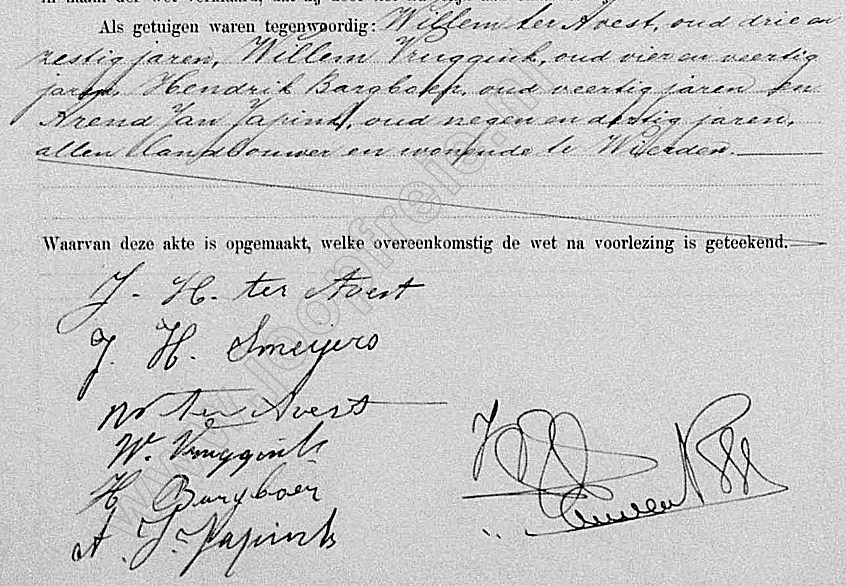 Als getuigen waren tegenwoordig: Willem ter Avest, oud drie en
zestig jaren, Willem Vruggink, oud vier en veertig
jaren, Hendrik Bargboer, oud veertig jaren en
Arend Jan Papink, oud negen en dertig jaren,
allen landbouwer en wonende te Wierden.
Waarvan deze akte is opgemaakt, welke overeenkomstig de wet na voorlezing is geteekend.
J. H. ter Avest
J. H. Smeijers
W ter Avest
W. Vruggink
H Bargboer
A. J. Papink